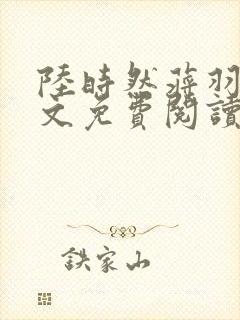 陸時然蒋羽
文免費閱讀
鉄家山